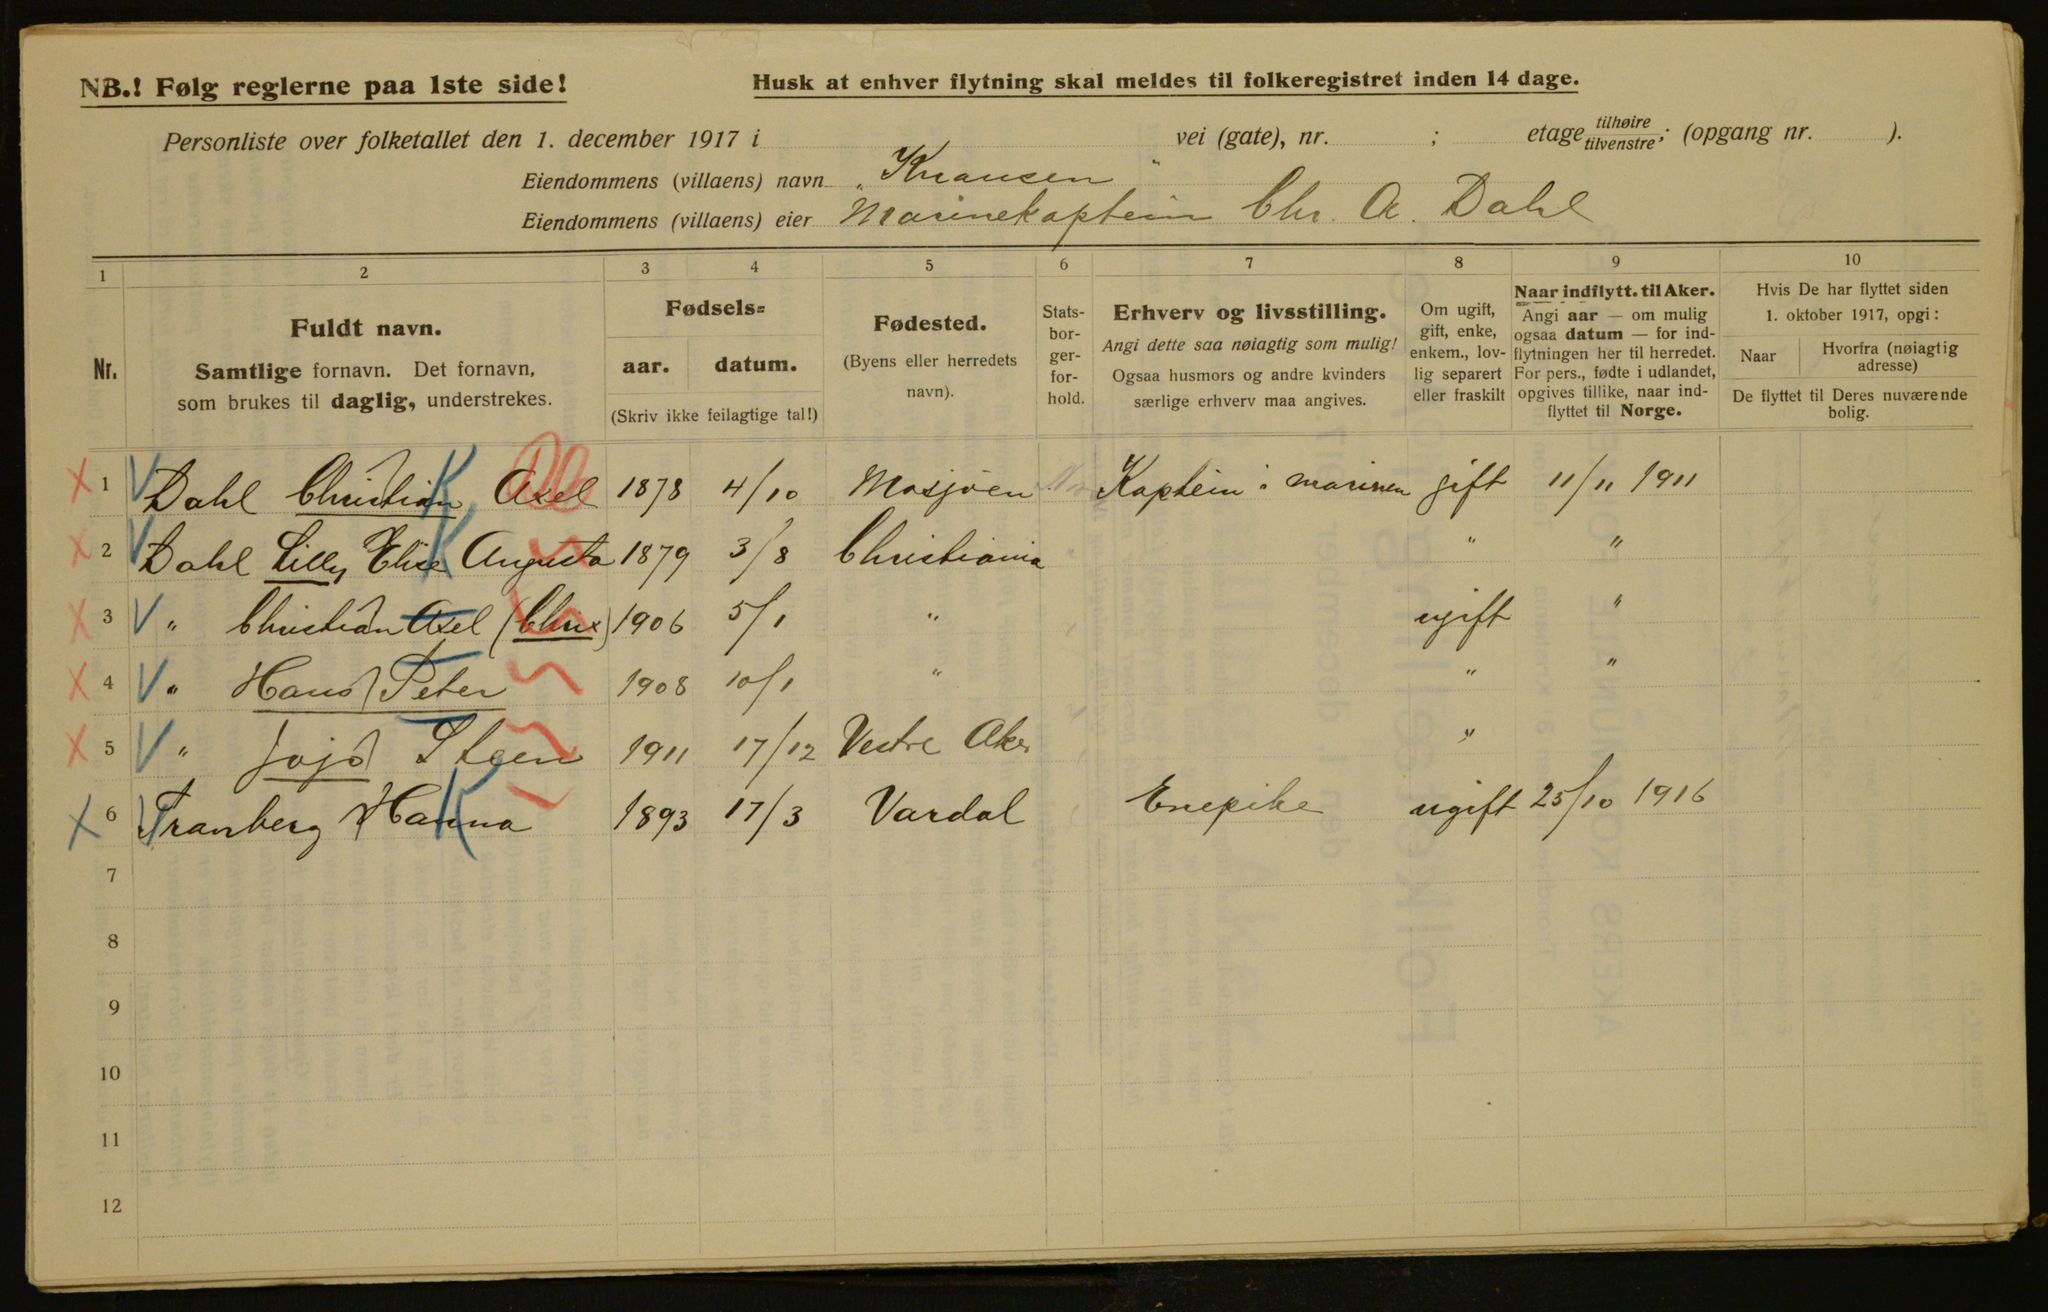 NB.! Følg reglerne paa 1ste side!
Husk at enhver flytning skal meldes til folkeregistret inden 14 dage.
Personliste over folketallet den 1. december 1917 i vei (gate), nr. ; etage tilhøire tilvenstre; (opgang nr. ).
Eiendommens (villaens) navn „Knausen"
Eiendommens (villaens) eier Marinekaptein Chr. A. Dahl
1 2 3 4 5 6 7 8 9 10
Nr.
Fuldt navn.
Samtlige fornavn. Det fornavn,
som brukes til daglig, understrekes.
Fødsels=
aar. datum.
(Skriv ikke feilagtige tal!)
Fødested.
(Byens eller herredets
navn).
Stats-
bor-
ger-
for-
hold.
Erhverv og livsstilling.
Angi dette saa nøiagtig som mulig!
Ogsaa husmors og andre kvinders
særlige erhverv maa angives.
Om ugift,
gift, enke,
enkem., lov-
lig separert
eller fraskilt
Naar indflytt. til Aker.
Angi aar — om mulig
ogsaa datum — for ind-
flytningen her til herredet.
For pers., fødte i udlandet,
opgives tillike, naar ind-
flyttet til Norge.
Hvis De har flyttet siden
1. oktober 1917, opgi:
Naar
Hvorfra (nøiagtig
adresse)
De flyttet til Deres nuværende
bolig.
1 Dahl Christian Axel 1878 4/10 Mosjøen Kaptein i marinen gift 11/11 1911
2 Dahl Lilly Elise Augusta 1879 3/8 Christiania " "
3 " Christian Axel (Chrix) 1906 5/1 " ugift "
4 " Hans Peter 1908 10/1 " " "
5 " Jojo Steen 1911 17/12 Vestre Aker "
6 Tranberg Hanna 1893 17/3 Vardal Enepike ugift 25/10 1916
7
8
9
10
11
12